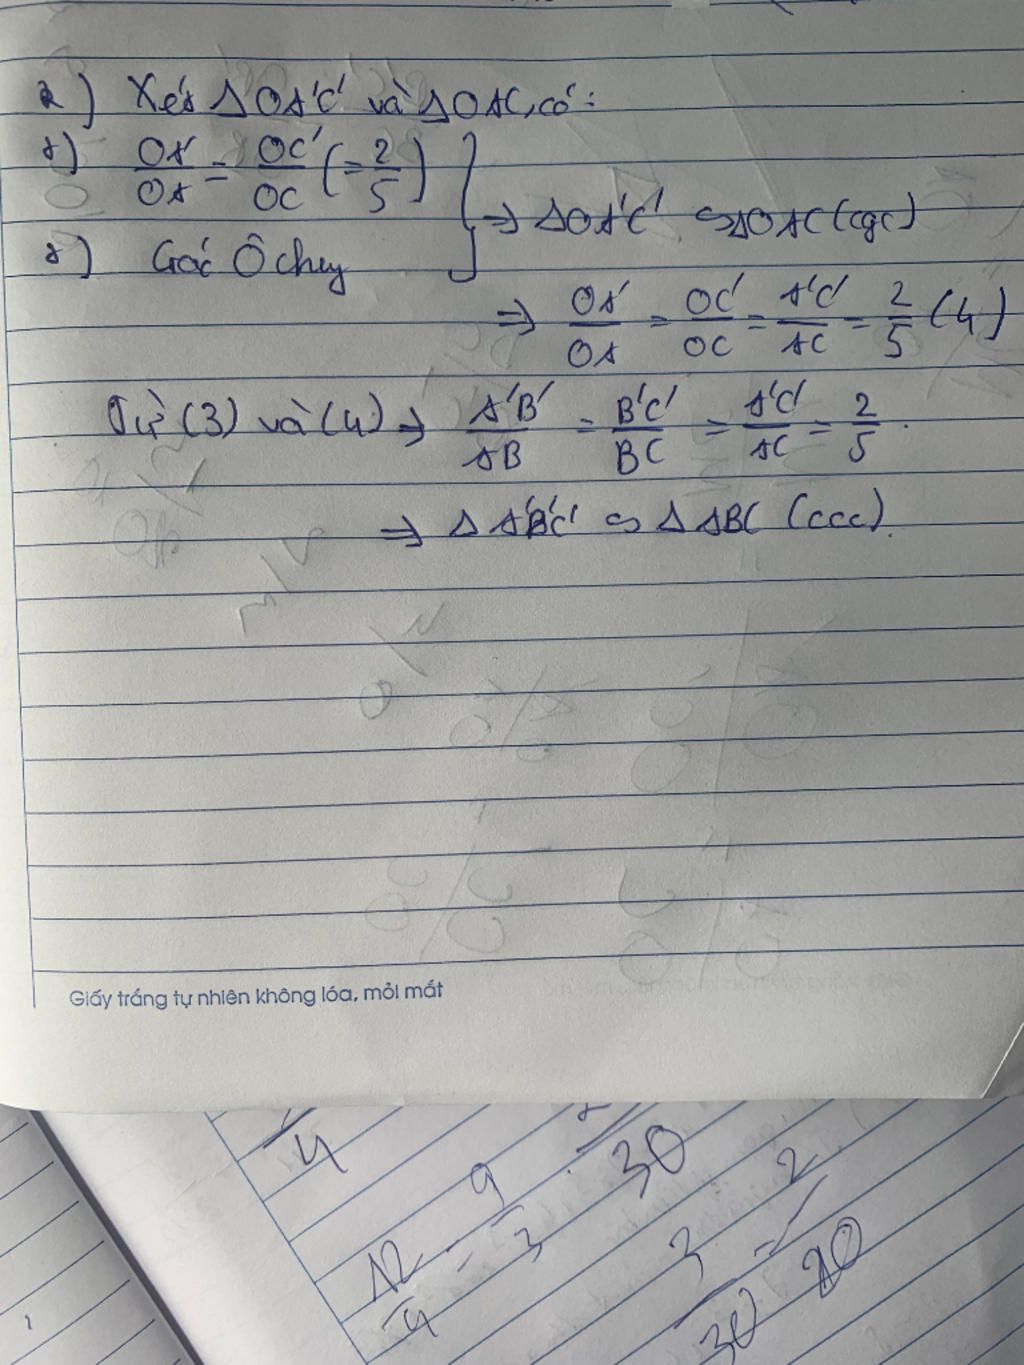 2) Xét ΔOA'C' và ΔOAC, có:
+) OA'/OA = OC'/OC (= 2/5)
+) Góc Ô chung
⇒ ΔOA'C' ∽ ΔOAC (cgc)
⇒ OA'/OA = OC'/OC = A'C'/AC = 2/5 (4)
Từ (3) và (4) ⇒ A'B'/AB = B'C'/BC = A'C'/AC = 2/5.
⇒ ΔA'B'C' ∽ ΔABC (ccc).
Giấy trắng tự nhiên không lóa, mỏi mắt
4
30
12/4 = 9/3
3/30 = 2
20